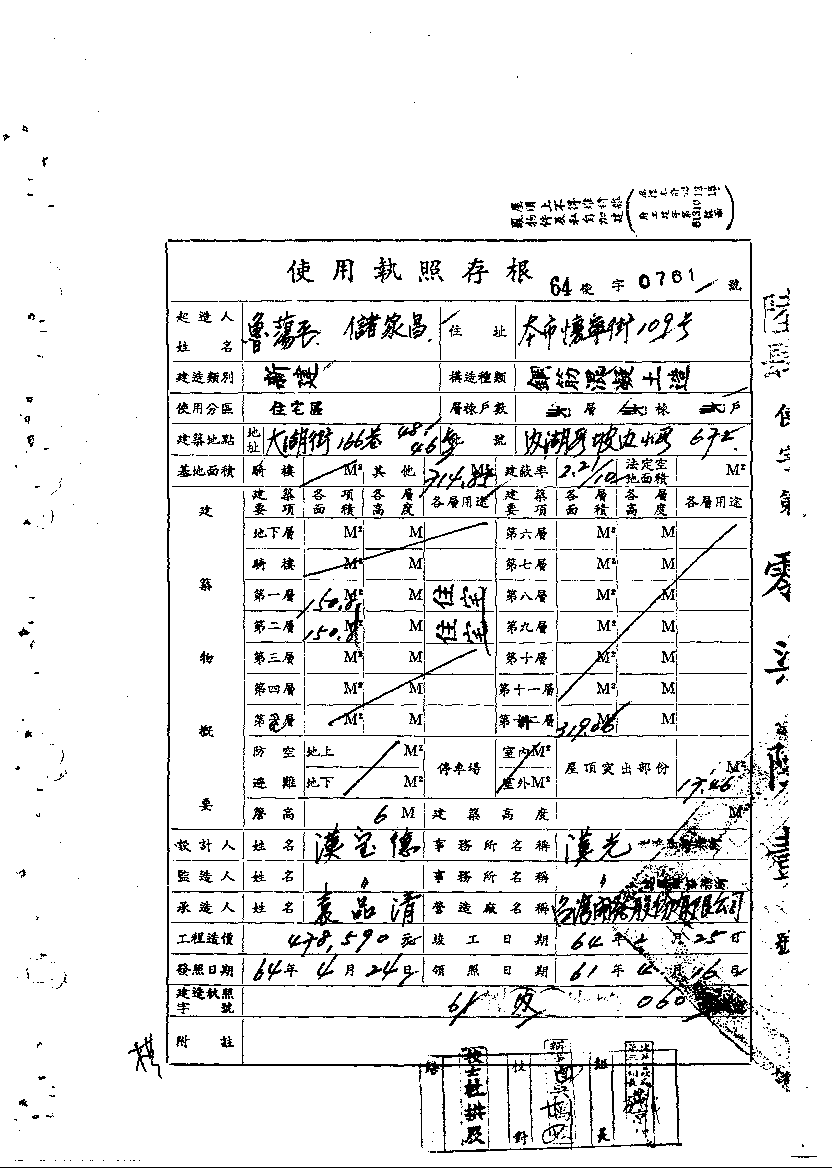 屋頂上不得堆積雜
物件及私自加搭建
使用執照存根 64使字0761號
起造人姓名 魯蕩平 儲家昌 住址 本市懷寧街109号
建造類別 新建 構造種類 鋼筋混凝土造
使用分區 住宅區 層棟戶數 層 棟 戶
建築地點 地址 大湖街166巷48 46号 號 內湖區坡山 672
基地面積 騎樓 M² 其他 714.85 M² 建蔽率 2.2/10 法定空地面積 M²
建築物概要
建築要項 各項面積 各層高度 各層用途 建築要項 各層面積 各層高度 各層用途
地下層 M² M 第六層 M² M
騎樓 M² M 第七層 M² M
第一層 150.8 M² M 住宅 第八層 M² M
第二層 150.8 M² M 住宅 第九層 M² M
第三層 M² M 第十層 M² M
第四層 M² M 第十一層 M² M
第 層 M² M 第 二層 319.06 M² M
防空 地上 M² 停車場 室內M² 屋頂突出部份 17.46 M²
避難 地下 M² 室外M²
簷高 6 M 建築高度 M²
設計人 姓名 漢宝德 事務所名稱 漢光
監造人 姓名 〃 事務所名稱 〃
承造人 姓名 袁品清 營造廠名稱 台灣開發股份有限公司
工程造價 478,590元 竣工日期 64年2月25日
發照日期 64年4月24日 領照日期 61年4月16日
建造執照字號 61 改 060
附註
校對
組長
使字第零柒陸壹號